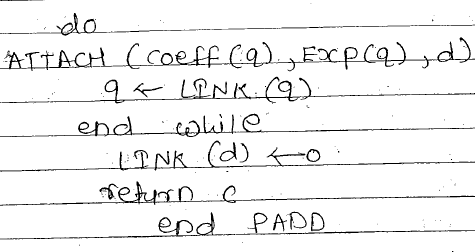 do
ATTACH (coeff(q), Exp(q), d)
q ← LINK(q)
end while
LINK (d) ← 0
return c
end PADD